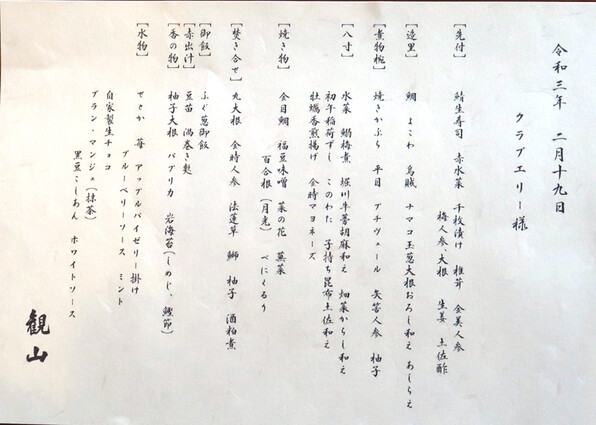 令和三年 二月十九日
クラブエリー様
［先付］ 鯖生寿司 赤水菜 千枚漬け 椎茸 金美人参
梅人参、大根 生姜 土佐酢
［造里］ 鯛 よこわ 烏賊 ナマコ玉葱大根おろし和え あしらえ
［煮物椀］ 焼きかぶら 平目 プチヴェール 矢筈人参 柚子
［八寸］ 水菜 鰯梅煮 堀川牛蒡胡麻和え 畑菜からし和え
初午稲荷ずし このわた 子持ち昆布土佐和え
牡蠣香煎揚げ 金時マヨネーズ
［焼き物］ 金目鯛 福豆味噌 菜の花 蕪菜
百合根（月光） べにくるり
［焚き合せ］ 丸大根 金時人参 法蓮草 鰤 柚子 酒粕煮
［御飯］ ふぐ葱御飯
［赤出汁］ 豆苗 渦巻き麩
［香の物］ 柚子大根 パプリカ 岩海苔（しめじ、鰹節）
［水物］ せとか 苺 アップルパイゼリー掛け
ブルーベリーソース ミント
自家製生チョコ
ブラン・マンジェ（抹茶）
黒豆こしあん ホワイトソース
観山